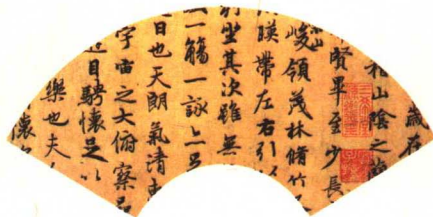 歲在
稽山陰之
賢畢至少長
峻領茂林脩竹
暎帶左右引以
列坐其次雖無
一觴一詠亦足
日也天朗氣清
宇宙之大俯察品
遊目騁懷足以
樂也夫
懷